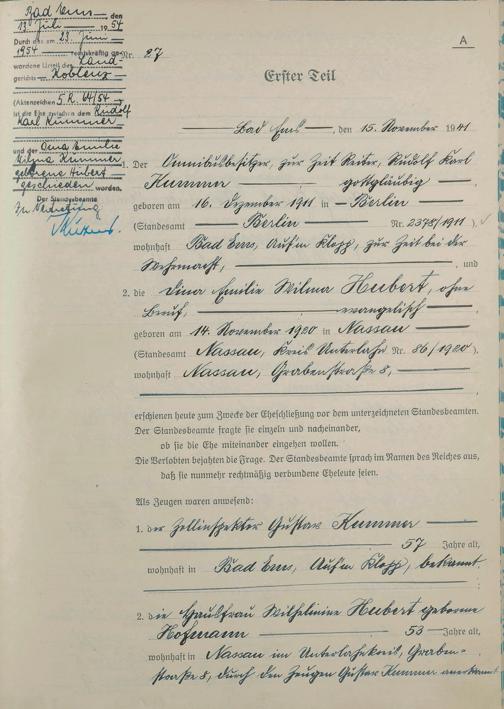 Bad Ems, den
13. Juli 1954
Durch das am 23. Juni
1954 rechtskräftig ge-
wordene Urteil des Land-
gerichts Koblenz
(Aktenzeichen 5. R. 64/54)
ist die Ehe zwischen dem Rudolf
Karl Kummer
und der Dina Emilie
Wilma Kummer
geborene Hubert
geschieden worden.
Der Standesbeamte
In Vertretung
A
Nr. 27
Erster Teil
Bad Ems, den 15. November 1941
1. Der Omnibusbesitzer, zur Zeit Reiter, Rudolf Karl
Kummer gottgläubig
geboren am 16. Dezember 1911 in Berlin
(Standesamt Berlin Nr. 2378/1911)
wohnhaft Bad Ems, Auf'm Klopp, zur Zeit bei der
Wehrmacht, und
2. die Dina Emilie Wilma Hubert, ohne
Beruf, evangelisch
geboren am 14. November 1920 in Nassau
(Standesamt Nassau, Kreis Unterlahn Nr. 86/1920),
wohnhaft Nassau, Grabenstraße 8,
erschienen heute zum Zwecke der Eheschließung vor dem unterzeichneten Standesbeamten.
Der Standesbeamte fragte sie einzeln und nacheinander,
ob sie die Ehe miteinander eingehen wollen.
Die Verlobten bejahten die Frage. Der Standesbeamte sprach im Namen des Reiches aus,
daß sie nunmehr rechtmäßig verbundene Eheleute seien.
Als Zeugen waren anwesend:
1. der Zollinspektor Gustav Kummer
57 Jahre alt,
wohnhaft in Bad Ems, Auf'm Klopp, bekannt.
2. die Hausfrau Wilhelmine Hubert geborene
Hofmann 53 Jahre alt,
wohnhaft in Nassau im Unterlahnkreis, Graben-
straße 8, durch den Zeugen Gustav Kummer anerkannt